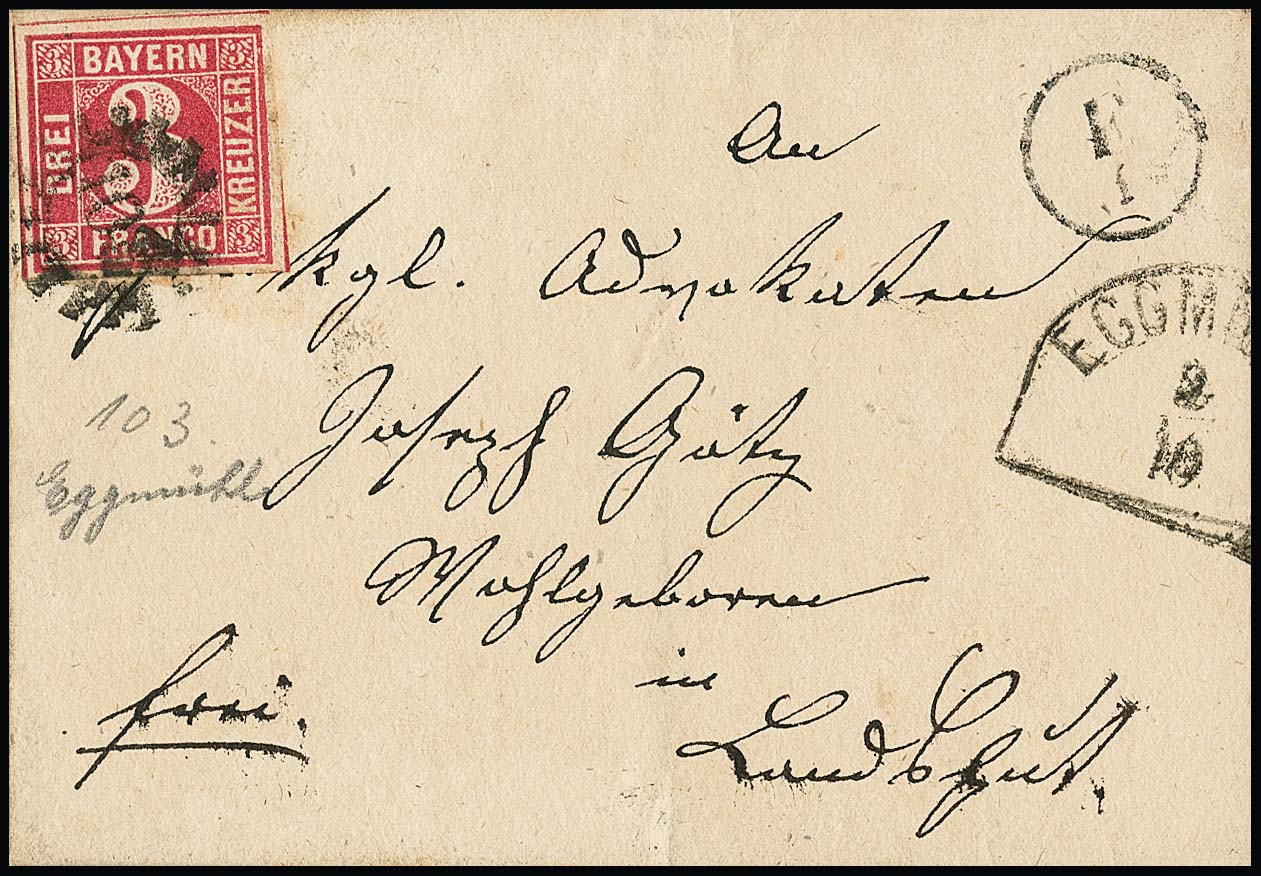 3 BAYERN 3
DREI
3
KREUZER
3 FRANCO 3
An
kgl. Advokaten
Joseph Götz
Wohlgeboren
in
Landshut.
frei.
103.
Eggmühl
EGGM
2
10